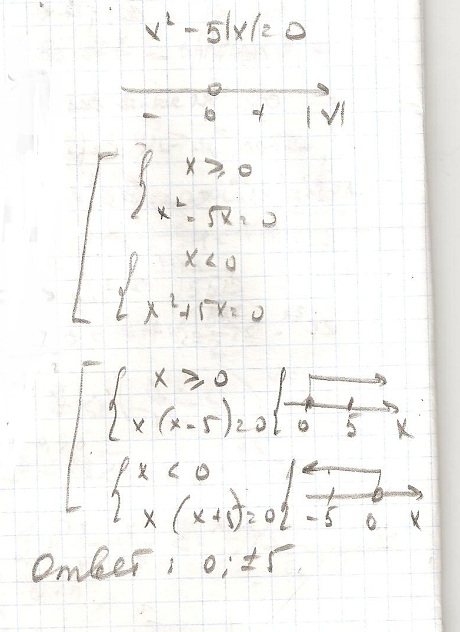 x² - 5|x| = 0
- 0 + |x|
x ≥ 0
x² - 5x = 0
x < 0
x² + 5x = 0
x ≥ 0
x (x - 5) = 0 0 5 x
x < 0
x (x + 5) = 0 -5 0 x
Ответ : 0; ±5